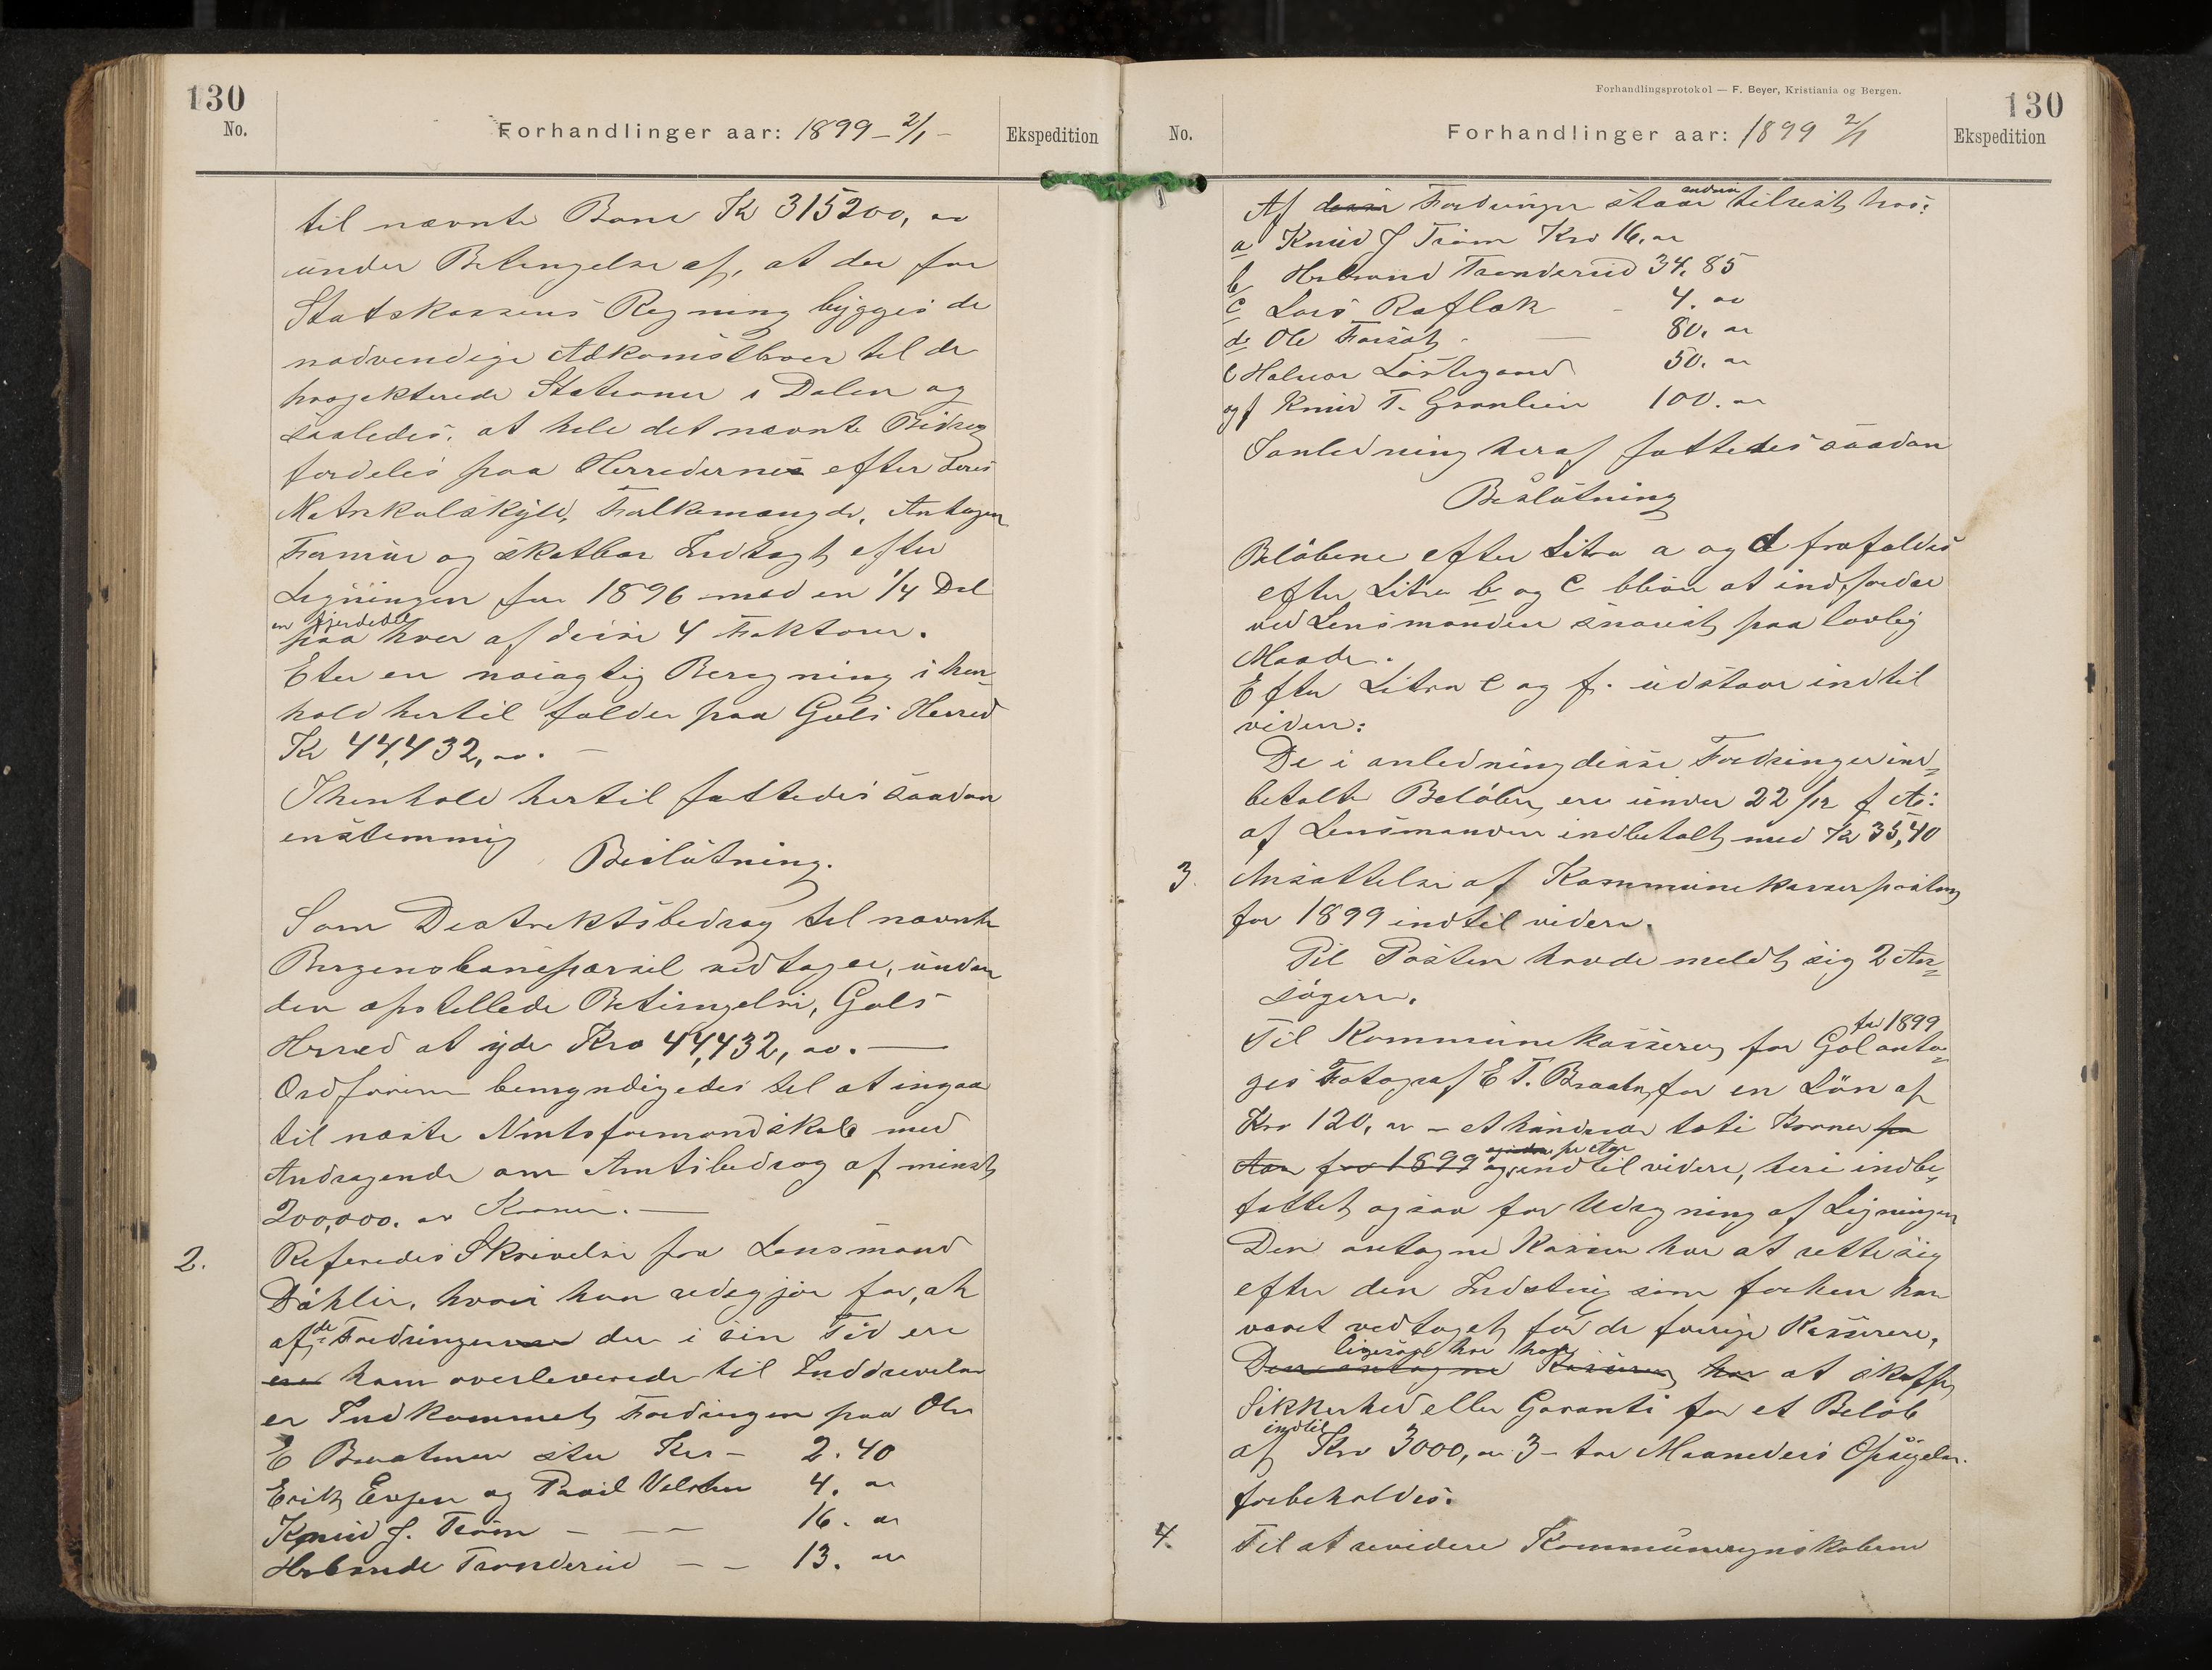 130
No.
Forhandlinger aar: 1899 - 2/1 -
Ekspedition
til nævnte Bane Kr 315200, oo
under Betingelse af, at der for
Statskassens Regning bygges de
nødvendige Adkomstveie til de
projekterede Stationer i Dalen og
saaledes, at hele det nævnte Bidrag
fordeles paa Herrederne efter deres
Matrikulskyld, Folkemængde, Antagen
Formue og skatbar Indtægt efter
Ligningen for 1896 med en 1/4 Del
en fjerdedel
paa hver af disse 4 Faktorer.
Efter en nøiagtig Beregning i hen-
hold hertil falder paa Gols Herred
Kr 44,432, oo. -
I henhold hertil fattedes saadan
enstemmig
Beslutning.
Som Distriktsbidrag til nævnte
Bergensbaneparsel vedtages, under
den opstillede Betingelse, Gols
Herred at yde Kro 44,432, oo. -
Ordføreren bemyndigedes til at ingaa
til næste Amtsformandskab med
Andragende om Amtsbidrag af mindst
200,000. oo Kroner. -
2. Referedes Skrivelse fra Lensmand
Dåhler, hvori han redegjør for, at
af de Fordringer der i sin Tid ere
ham overleverede til Inddrivelse
er Indkommet Fordringen paa Ole
E Braatmen stor Kr - 2. 40
Erik Evjen og Paul Velsten 4. oo
Knud J. Trøim - - - 16. oo
Hrbande Tronderud - - 13. oo
Forhandlingsprotokol — F. Beyer, Kristiania og Bergen.
130
No.
Forhandlinger aar: 1899 2/1
Ekspedition
Af disse Fordringer staar andnu tilrest hos:
a Knud J Trøim Kro 16, oo
b Hrbrand Tronderud 34, 85
c Lars Raflak - 4. oo
d Ole Forsåt - 80. oo
e Halvor Løstegaard 50. oo
og f Knud T. Granlien 100. oo
I anledning heraf fattedes saadan
Beslutning
Beløbene efter Litra a og d frafaldes
efter Litra b og c bliver at indfordre
ved Lensmanden snarest paa lovlig
Maade.
Efter Litra e og f. udstaar indtil
videre:
De i anledning disse Fordringer ind-
betalte Beløber, ere under 22/12 f A:
af Lensmanden indbetalt med Kr 35,40
3. Ansættelse af Kommunekassererposten
for 1899 indtil videre.
Til Posten havde meldt sig 2 An-
søgere.
for 1899
Til Kommunekasserer for Gol anta-
ges Fotograf E T. Braaten for en Løn af
Kro 120, oo - et hundrede toti Kroner pr
pr Aar
Aar for 1899 og indtil videre, heri indbe-
fattet ogsaa for Udregning af Ligningen
Den antagne Kasserer har at rette sig
efter den Indstrux som forhen har
været vedtaget for de forrige Kasserere,
ligesaa har han
Den antagne Kasserer har at skaffe
Sikkerhed eller Garanti for et Beløb
indtil
af Kro 3000, oo 3 - tre Maaneders Opsigelse
forbeholdes.
4. Til at revidere Kommuneregnskaberne